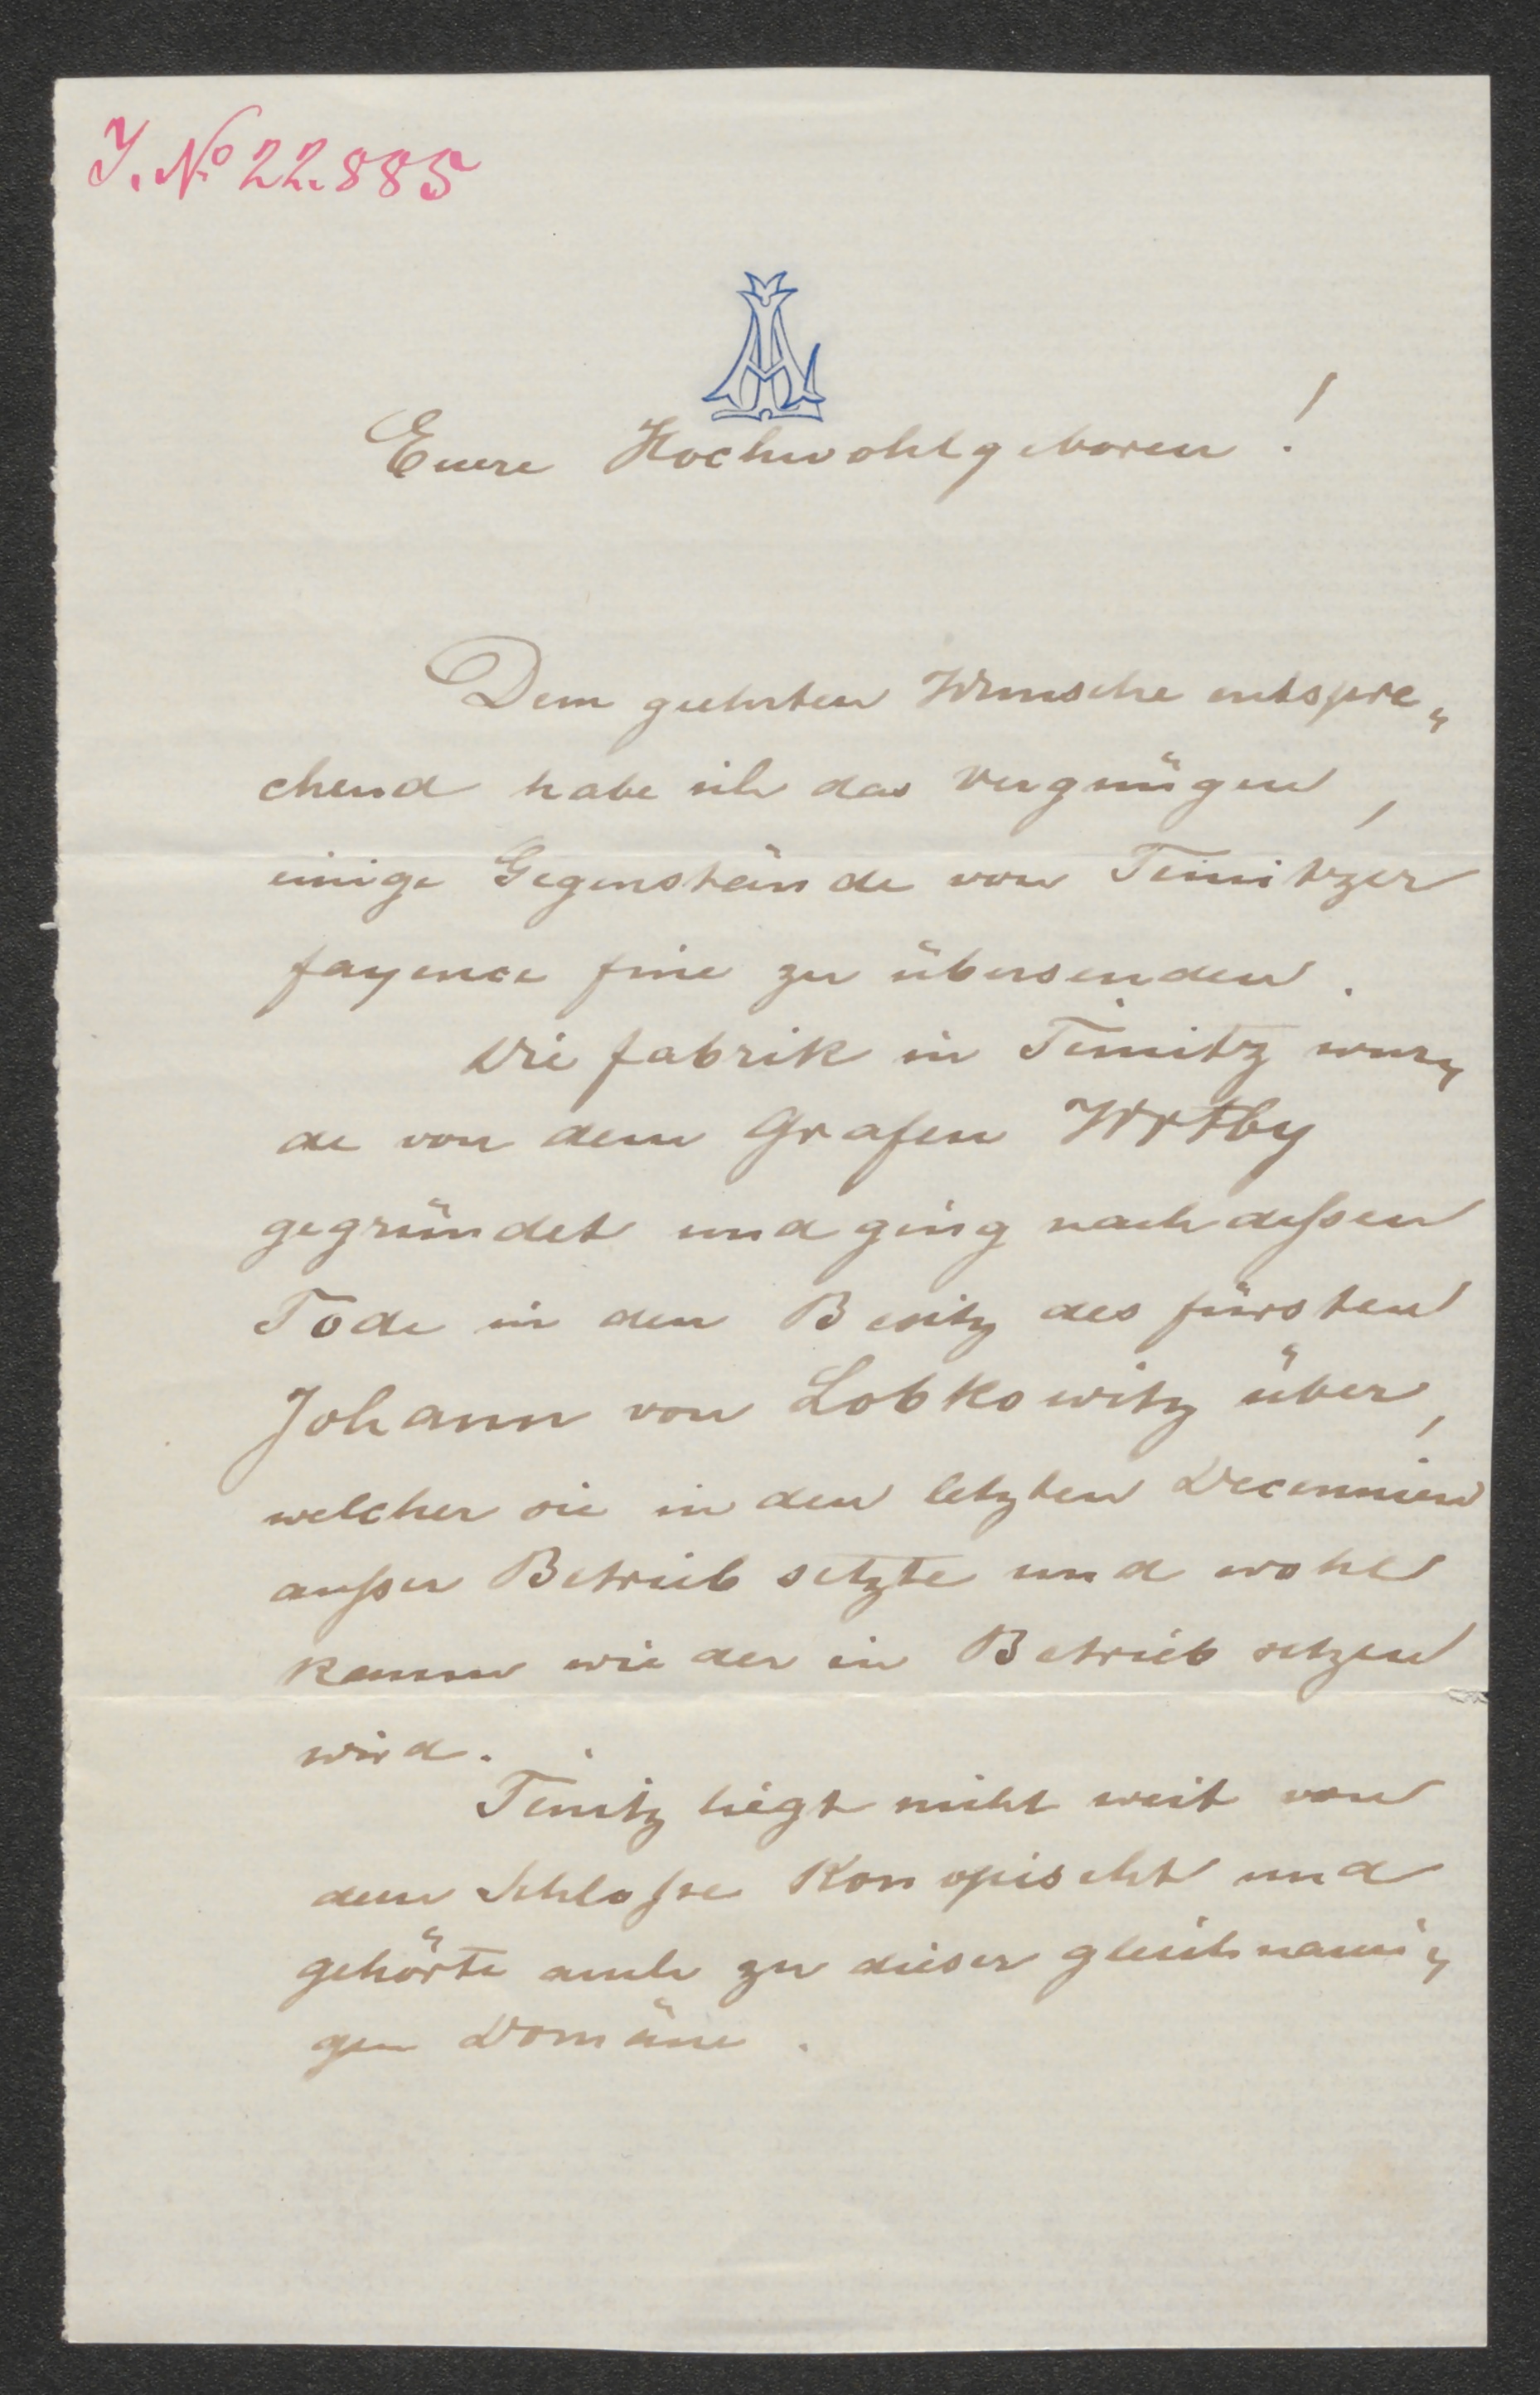 J. No 22.885
AL
Euere Hochwohlgeboren!
Dem geehrten Wunsche entspre„
chend habe ich das Vergnügen,
einige Gegenstände von Teinitzer
fayence fine zu übersenden.
Die fabrik in Teinitz wur„
de von dem Grafen Wrtby
gegründet und ging nach deßen
Tode in den Besitz des fürsten
Johann von Lobkowitz über,
welcher sie in den letzten Decennien
außer Betrieb setzte und wohl
kaum wieder in Betrieb setzen
wird.
Teinitz liegt nicht weit von
dem Schloße Konopischt und
gehörte auch zu dieser gleichnami„
gen Domäne.